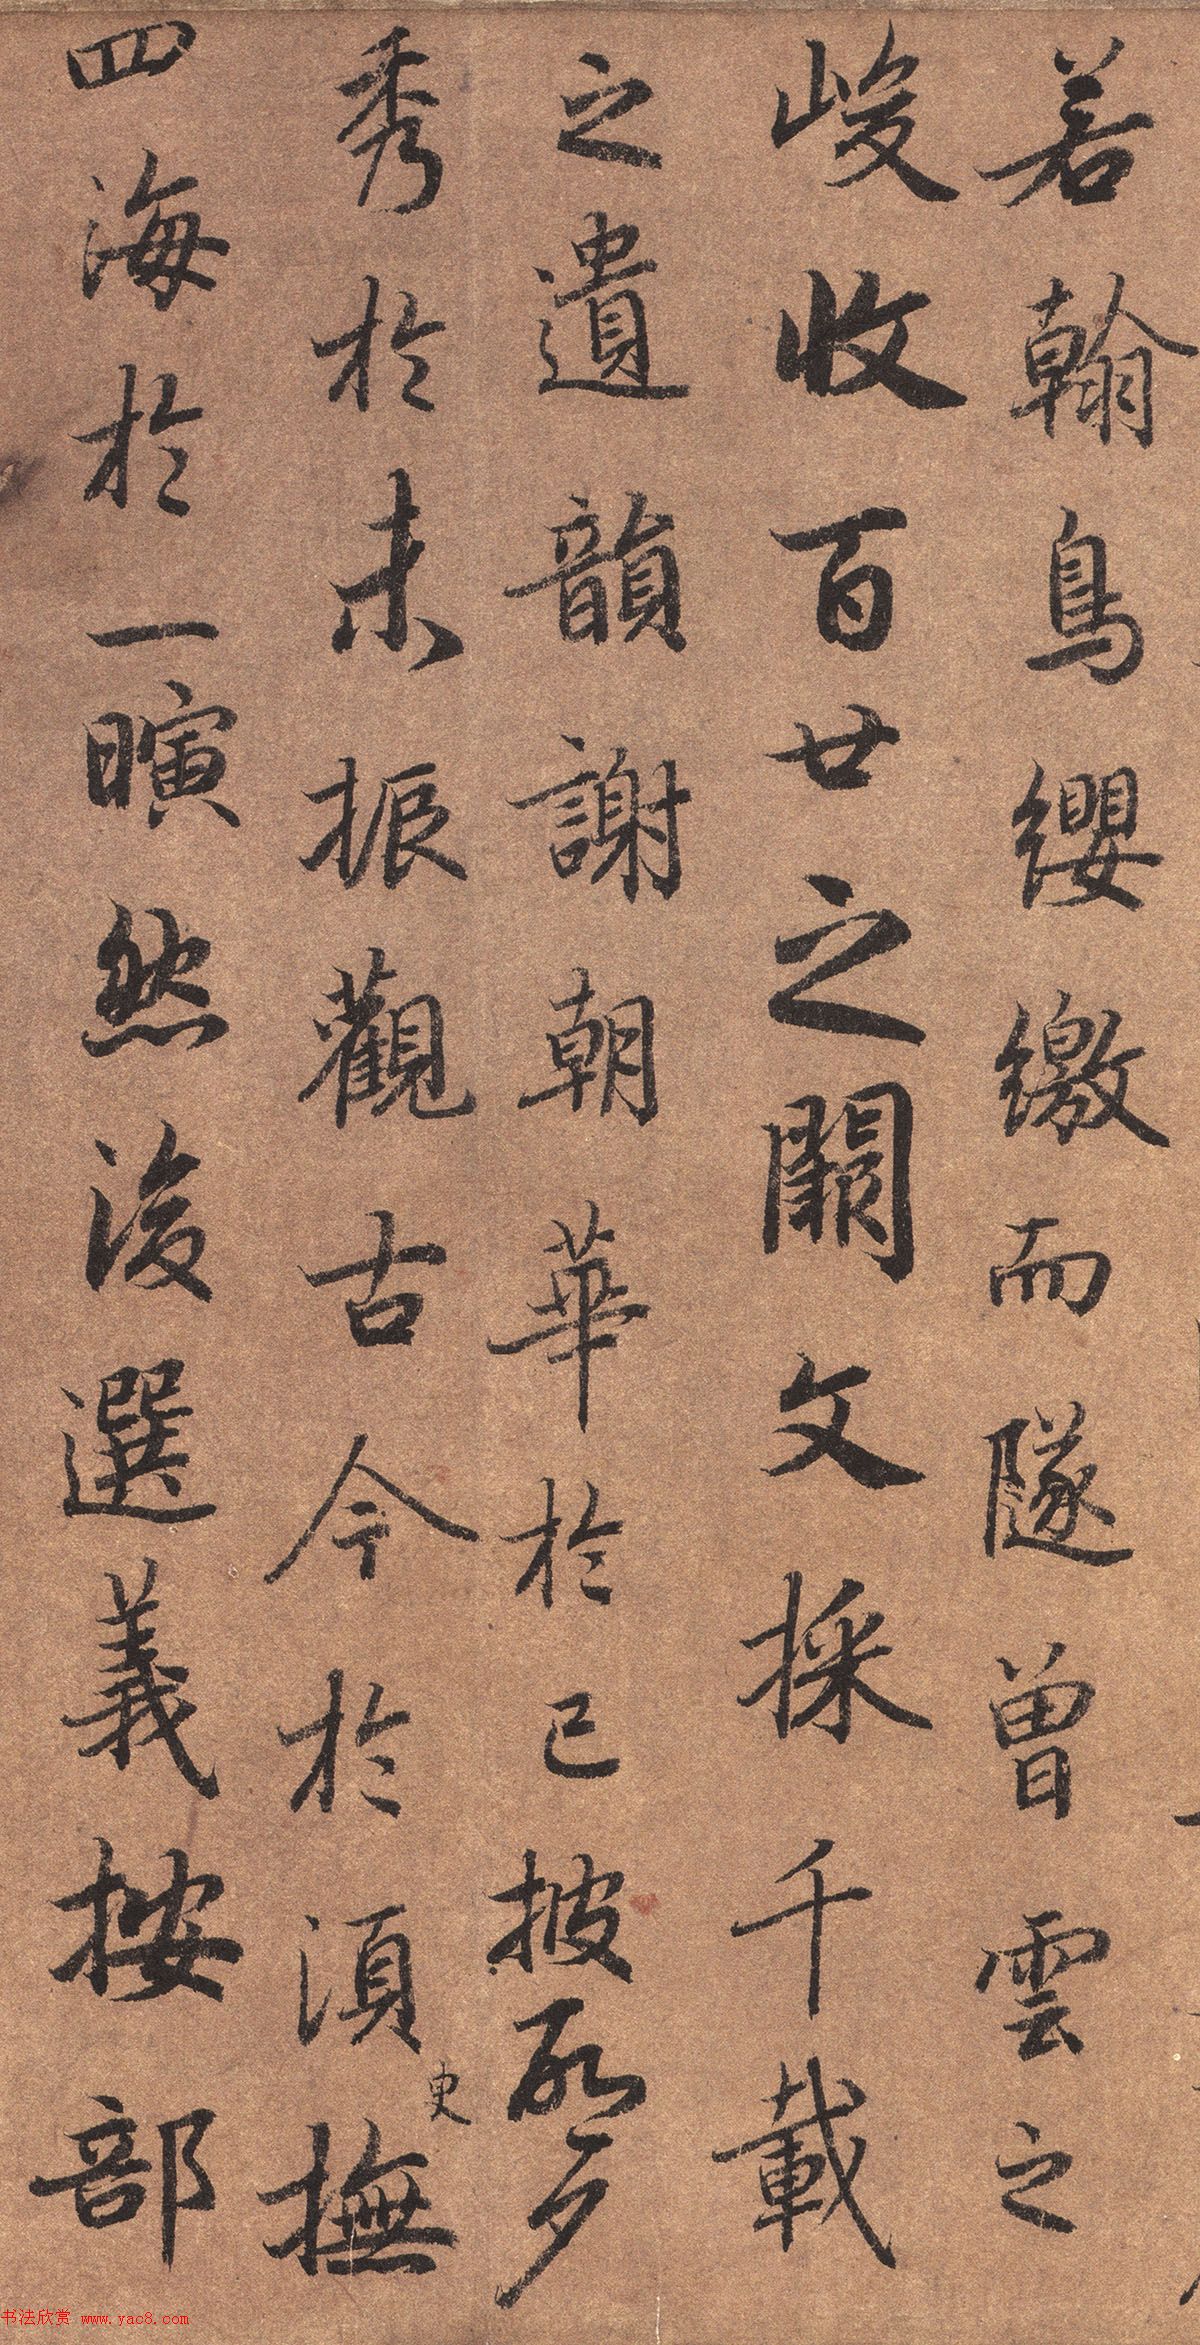 若翰鳥纓繳而墜曾雲之
峻收百世之闕文採千載
之遺韻謝朝華於已披啓夕
秀於未振觀古今於須撫
更
四海於一瞚然後選義按部
书法欣赏 www.yac8.com